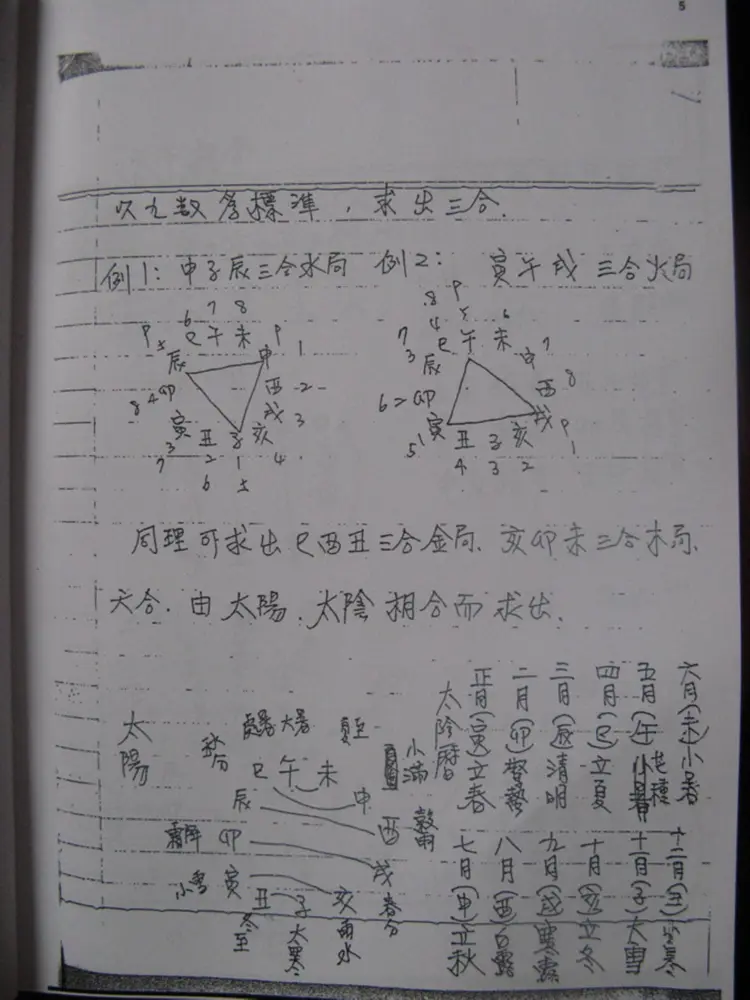 5
以九数為標準，求出三合.
例1：申子辰三合水局 例2： 寅午戌 三合火局
6 7 8
9 5 巳 午 未 9
辰 申 1
8 4 卯 酉 2
寅 戌 3
7 3 丑 子 亥 4
2 1
6 5
8 9
7 4 5 6
3 巳 午 未 7
辰 申
酉 8
6 2 卯
寅 戌 9
5 1 丑 子 亥 1
4 3 2
同理可求出巳酉丑三合金局、亥卯未三合木局、
六合. 由太陽.太陰相合而求出.
太陽
秋分 處暑 大暑 夏至
巳 午 未 小滿
辰 申
酉
霜降 卯 戌 春分
小雪 寅 亥 雨水
丑 子
冬至 大寒
太陰曆
正月(寅)立春
二月(卯)驚蟄
三月(辰)清明
四月(巳)立夏
五月(午)芒種
六月(未)小暑
七月(申)立秋
八月(酉)白露
九月(戌)寒露
十月(亥)立冬
十一月(子)大雪
十二月(丑)小寒